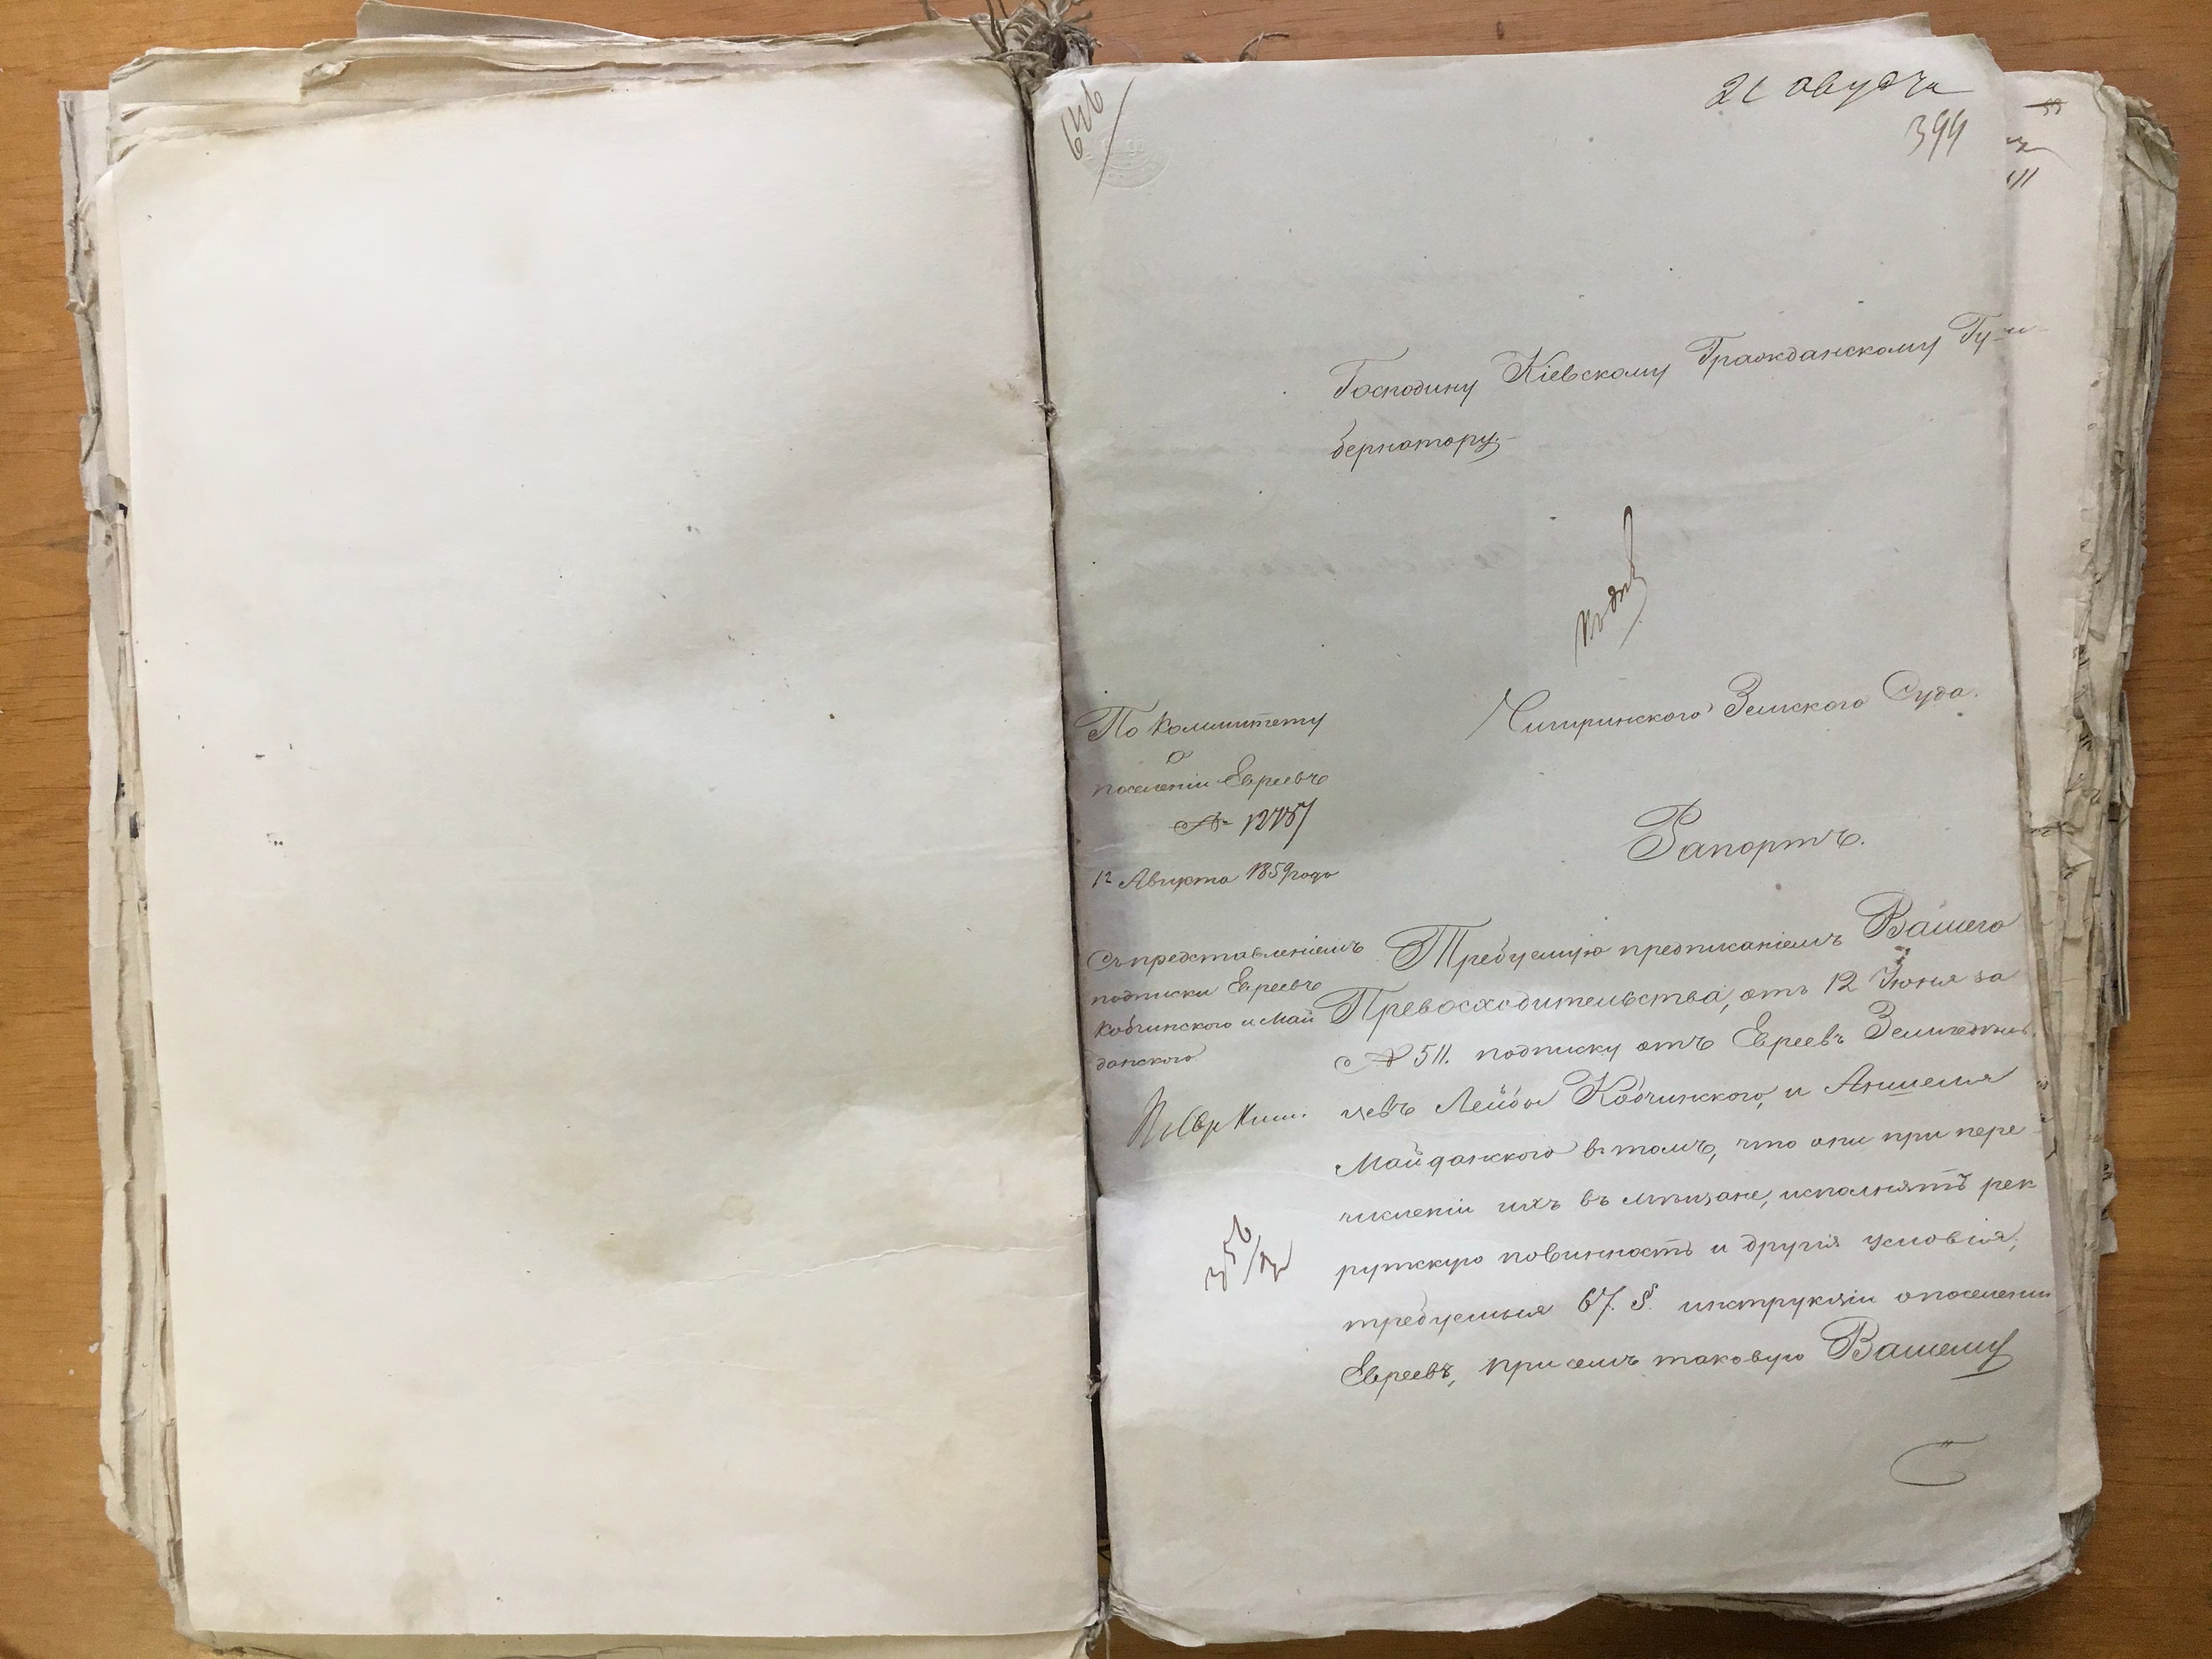 646
21 августа
394
Господину Кіевскому Гражданскому Гу-
бернатору.
Чигиринского Земского Суда.
По Коммитету
о
поселеніи Евреевъ
№ 12757
12 Августа 1859 года
Рапортъ.
Съ представленіемъ
подписки Евреевъ
Кобчинского и Май
данского
Требуемую предписаніемъ Вашего
Превосходительства, отъ 12 Іюня за
№ 511. подписку отъ Евреевъ Земледѣль
цевъ Лейбы Кобчинского, и Аншеля
Майданского въ томъ, что они при пере
численіи ихъ въ мѣщане, исполнятъ рек
рутскую повинность и другія условія,
требуемыя 67. §. инструкціи о поселеніи
Евреевъ, при семъ таковую Вашему
356